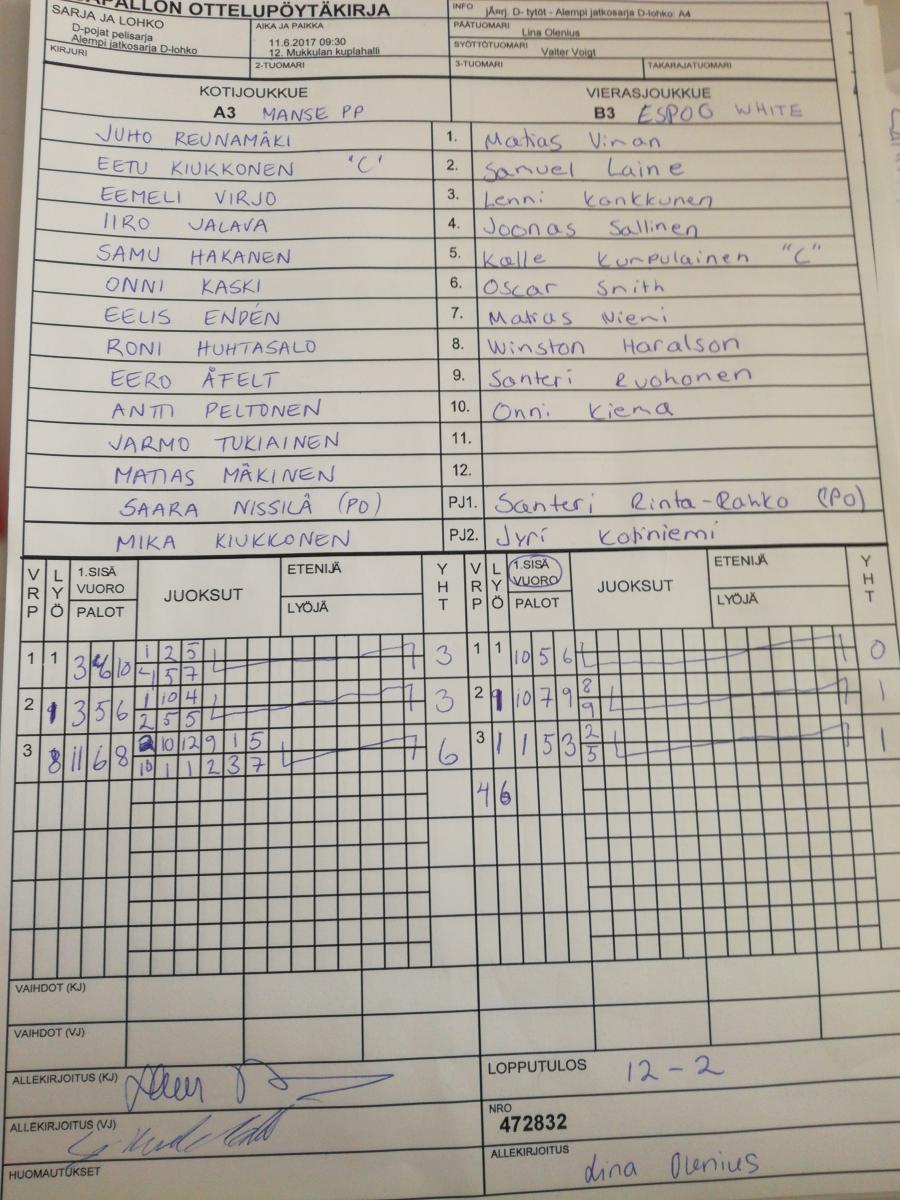 APALLON OTTELUPÖYTÄKIRJA
SARJA JA LOHKO
D-pojat pelisarja
Alempi jatkosarja D-lohko
AIKA JA PAIKKA
11.6.2017 09:30
12. Mukkulan kuplahalli
INFO
jÄrrj. D- tytöt - Alempi jatkosarja D-lohko: A4
PÄÄTUOMARI
Lina Olenius
SYÖTTÖTUOMARI
Valter Voigt
KIRJURI
2-TUOMARI
3-TUOMARI
TAKARAJATUOMARI
KOTIJOUKKUE
A3 MANSE PP
VIERASJOUKKUE
B3 ESPOO WHITE
JUHO REUNAMÄKI 1. Matias Virran
EETU KIUKKONEN "C" 2. Samuel Laine
EEMELI VIRJO 3. Lenni Kankkunen
IIRO JALAVA 4. Joonas Sallinen
SAMU HAKANEN 5. Kalle Kurpulainen "C"
ONNI KASKI 6. Oscar Smith
EELIS ENDÉN 7. Matias Niemi
RONI HUHTASALO 8. Winston Haralson
EERO ÅFELT 9. Santeri Ruohonen
ANTTI PELTONEN 10. Onni Kiema
JARMO TUKIAINEN 11.
MATIAS MÄKINEN 12.
SAARA NISSILÄ (PO) PJ1. Santeri Rinta-Rahko (PO)
MIKA KIUKKONEN PJ2. Jyri Kotiniemi
VRP LYÖ 1.SISÄ VUORO PALOT JUOKSUT ETENIJÄ LYÖJÄ YHT VRP LYÖ 1.SISÄ VUORO PALOT JUOKSUT ETENIJÄ LYÖJÄ YHT
1 1 3 4 10 1 2 5 3 1 1 10 5 6 0
4 5 7
2 9 3 5 6 1 10 4 3 2 9 10 7 9 8 1
2 5 5 9
3 8 11 6 8 2 10 12 9 1 5 6 3 1 1 5 3 2 1
10 1 1 2 3 7 5
4 6
VAIHDOT (KJ)
VAIHDOT (VJ)
ALLEKIRJOITUS (KJ)
LOPPUTULOS 12-2
ALLEKIRJOITUS (VJ)
NRO
472832
HUOMAUTUKSET
ALLEKIRJOITUS
Lina Olenius